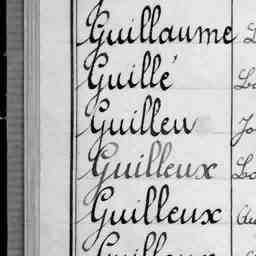 Guillaume
Guillé
Guilleu
Guilleux
Guilleux